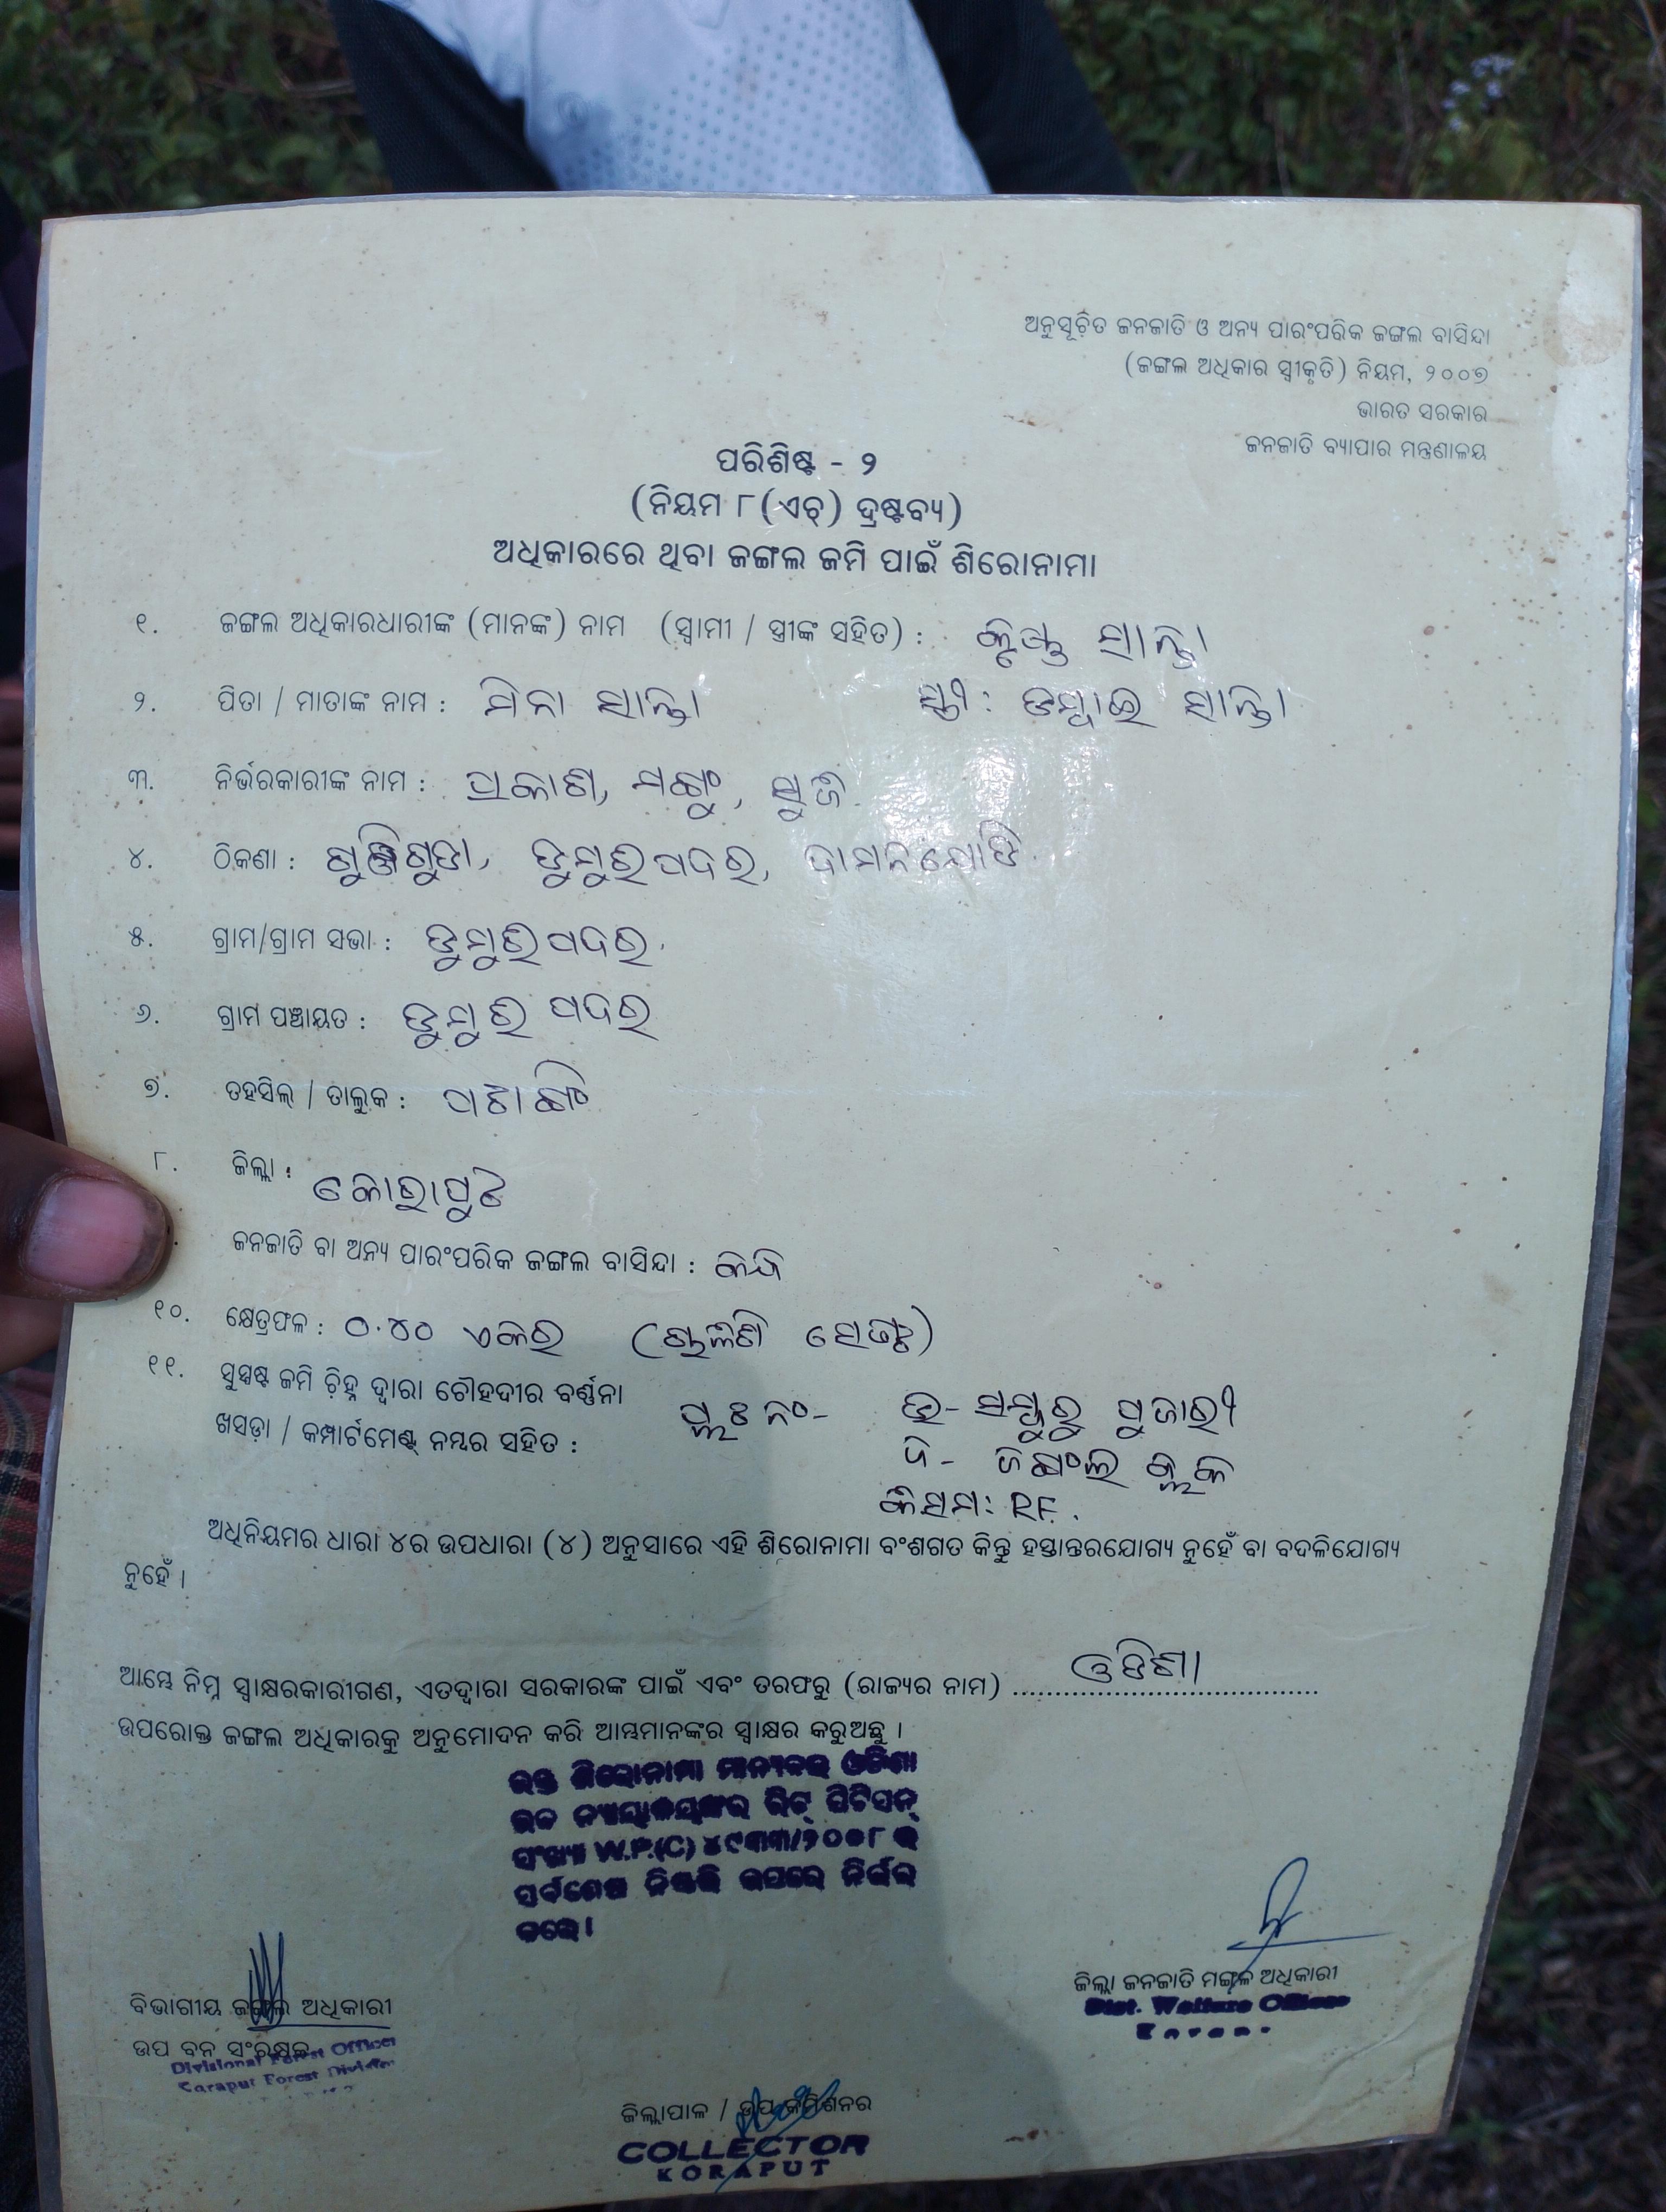 ଅନୁସୂଚିତ ଜନଜାତି ଓ ଅନ୍ୟ ପାରଂପରିକ ଜଙ୍ଗଲ ବାସିନ୍ଦା
(ଜଙ୍ଗଲ ଅଧିକାର ସ୍ୱୀକୃତି) ନିୟମ, ୨୦୦୭
ଭାରତ ସରକାର
ଜନଜାତି ବ୍ୟାପାର ମନ୍ତ୍ରଣାଳୟ
ପରିଶିଷ୍ଟ - ୨
(ନିୟମ ୮(ଏଚ୍) ଦ୍ରଷ୍ଟବ୍ୟ)
ଅଧିକାରରେ ଥିବା ଜଙ୍ଗଲ ଜମି ପାଇଁ ଶିରୋନାମା
୧. ଜଙ୍ଗଲ ଅଧିକାରଧାରୀଙ୍କ (ମାନଙ୍କ) ନାମ (ସ୍ୱାମୀ / ସ୍ତ୍ରୀଙ୍କ ସହିତ) : ସାନ୍ତା
୨. ପିତା / ମାତାଙ୍କ ନାମ : ମିନା ସାନ୍ତା ସ୍ତ୍ରୀ : ସାନ୍ତା
୩. ନିର୍ଭରକାରୀଙ୍କ ନାମ : ପ୍ରକାଶ,
୪. ଠିକଣା : ଡୁମୁରିପଦର, ଦାମନଯୋଡି
୫. ଗ୍ରାମ/ଗ୍ରାମ ସଭା : ଡୁମୁରିପଦର
୬. ଗ୍ରାମ ପଞ୍ଚାୟତ : ଡୁମୁରି ପଦର
୭. ତହସିଲ୍ / ତାଲୁକ :
୮. ଜିଲ୍ଲା : କୋରାପୁଟ
ଜନଜାତି ବା ଅନ୍ୟ ପାରଂପରିକ ଜଙ୍ଗଲ ବାସିନ୍ଦା :
୧୦. କ୍ଷେତ୍ରଫଳ : ୦.୪୦ ଏକର
୧୧. ସୁସ୍ପଷ୍ଟ ଜମି ଚିହ୍ନ ଦ୍ୱାରା ଚୌହଦୀର ବର୍ଣ୍ଣନା
ଖସଡ଼ା / କମ୍ପାର୍ଟମେଣ୍ଟ୍ ନମ୍ବର ସହିତ : ନଂ- ଉ- ପୁଜାରୀ
ଦ -
କିସମ: RF.
ଅଧିନିୟମର ଧାରା ୪ର ଉପଧାରା (୪) ଅନୁସାରେ ଏହି ଶିରୋନାମା ବଂଶଗତ କିନ୍ତୁ ହସ୍ତାନ୍ତରଯୋଗ୍ୟ ନୁହେଁ ବା ବଦଳିଯୋଗ୍ୟ
ନୁହେଁ ।
ଆମ୍ଭେ ନିମ୍ନ ସ୍ୱାକ୍ଷରକାରୀଗଣ, ଏତଦ୍ୱାରା ସରକାରଙ୍କ ପାଇଁ ଏବଂ ତରଫରୁ (ରାଜ୍ୟର ନାମ) ଓଡିଶା
ଉପରୋକ୍ତ ଜଙ୍ଗଲ ଅଧିକାରକୁ ଅନୁମୋଦନ କରି ଆମ୍ଭମାନଙ୍କର ସ୍ୱାକ୍ଷର କରୁଅଛୁ ।
ଉକ୍ତ ଶିରୋନାମା ମାନ୍ୟବର ଓଡିଶା
ଉଚ୍ଚ ନ୍ୟାୟାଳୟଙ୍କର ରିଟ୍ ପିଟିସନ୍
ସଂଖ୍ୟା W.P.(C) ୪୯୩୩/୨୦୦୮ ର
ସର୍ବଶେଷ ନିଷ୍ପତ୍ତି ଉପରେ ନିର୍ଭର
କରେ।
ବିଭାଗୀୟ ଜଙ୍ଗଲ ଅଧିକାରୀ
ଉପ ବନ ସଂରକ୍ଷକ
Divisional Forest Officer
Koraput Forest Division
ଜିଲ୍ଲା ଜନଜାତି ମଙ୍ଗଳ ଅଧିକାରୀ
Dist. Welfare Officer
ଜିଲ୍ଲାପାଳ / ଉପ କମିଶନର
COLLECTOR
KORAPUT